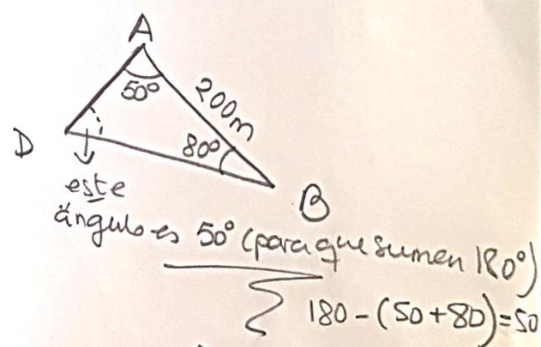 A
50º
200m
D
80º
B
este
ángulo es 50º (para que sumen 180º)
180 - (50 + 80) = 50